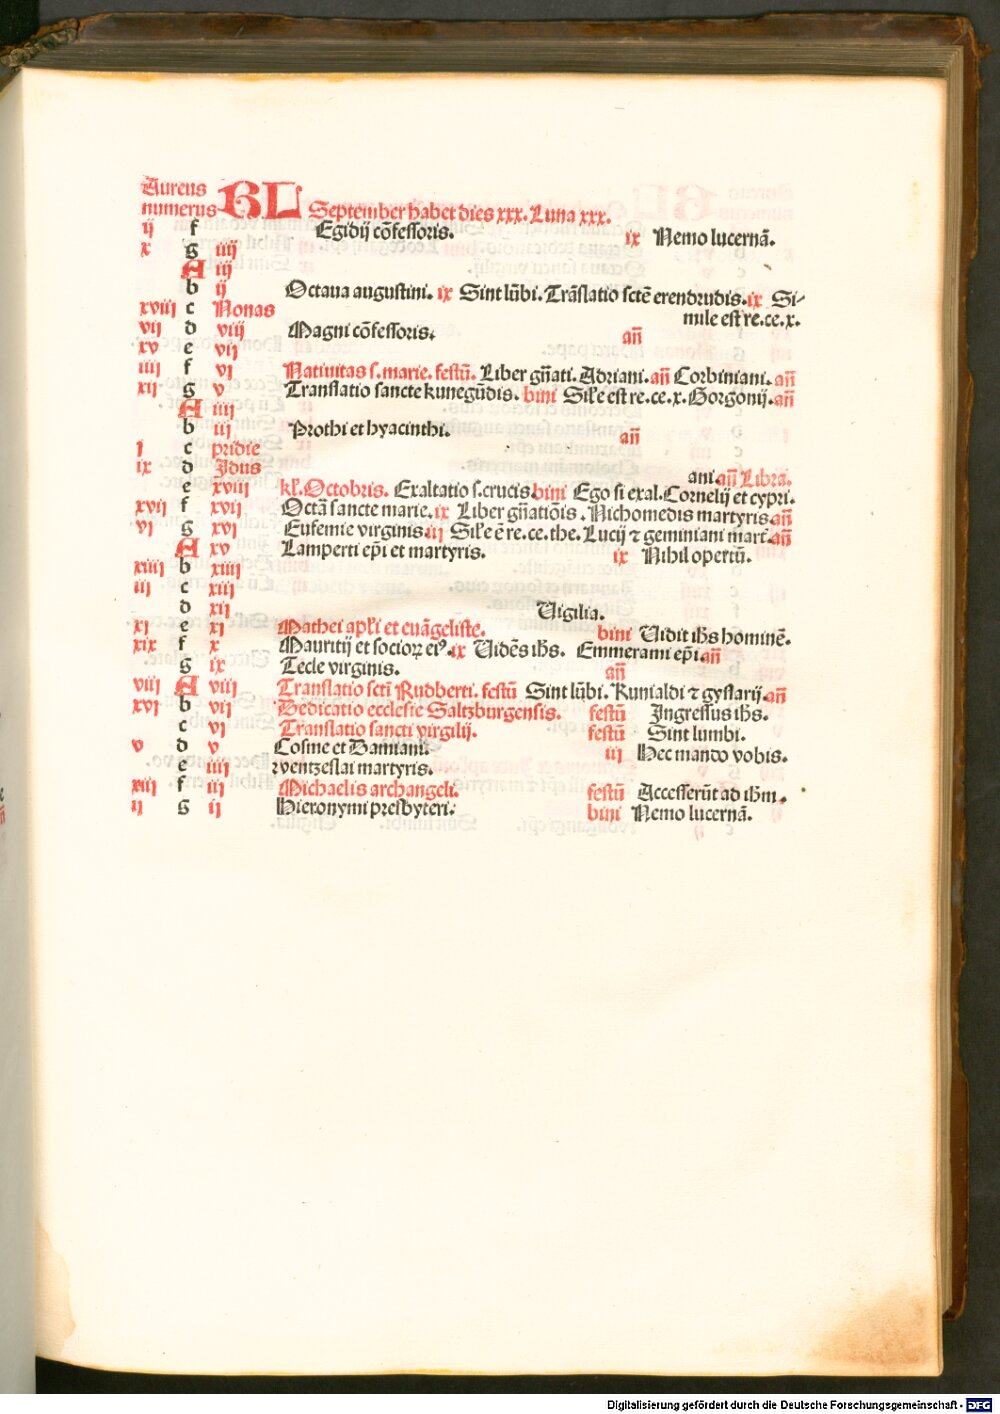 Aureus
numerus KL September habet dies xxx. Luna xxx.
ij f Egidij cōfessoris. ix Nemo lucernā.
x g iiij
A iij
b ij Octaua augustini. ix Sint lūbi. Trāslatio sctē erendrudis. ix Si-
xviij c Nonas mile est re. ce. x.
vij d viij Magni cōfessoris. añ
xv e vij
iiij f vj Natiuitas s. marie. festū. Liber gñati. Adriani. añ Corbiniani. añ
xij g v Translatio sancte kunegūdis. bini Sil'e est re. ce. x. Gorgonij. añ
A iiij
b iij Prothi et hyacinthi. añ
j c pridie
ix d Idus ani. añ Libra.
e xviij kl'. Octobris. Exaltatio s. crucis bini Ego si exal. Cornelij et cypri.
xvij f xvij Octā sancte marie. ix Liber gñatiōis. Nichomedis martyris añ
vj g xvj Eufemie virginis iij Sil'e ē re. ce. the. Lucij ⁊ geminiani mart. añ
A xv Lamperti ep̄i et martyris. ix Nihil opertū.
xiiij b xiiij
iij c xiij
d xij Uigilia.
xj e xj Mathei apl'i et euāgeliste. bini Uidit ih̄s hominē.
xix f x Mauritij et socioꝝ eiꝰ. ix Uidēs ih̄s. Emmerami ep̄i añ
g ix Tecle virginis. añ
viij A viij Translatio sctī Rudberti. festū Sint lūbi. Kunialdi ⁊ gyslarij añ
xvj b vij Dedicatio ecclesie Saltzburgensis. festū Ingressus ih̄s.
c vj Translatio sancti virgilij. festū Sint lumbi.
v d v Cosme et Damiani. iij Hec mando vobis.
e iiij wentzeslai martyris.
xiij f iij Michaelis archangeli. festū Accesserūt ad ih̄m.
ij g ij Hieronymi presbyteri. bini Nemo lucernā.
Digitalisierung gefördert durch die Deutsche Forschungsgemeinschaft - DFG